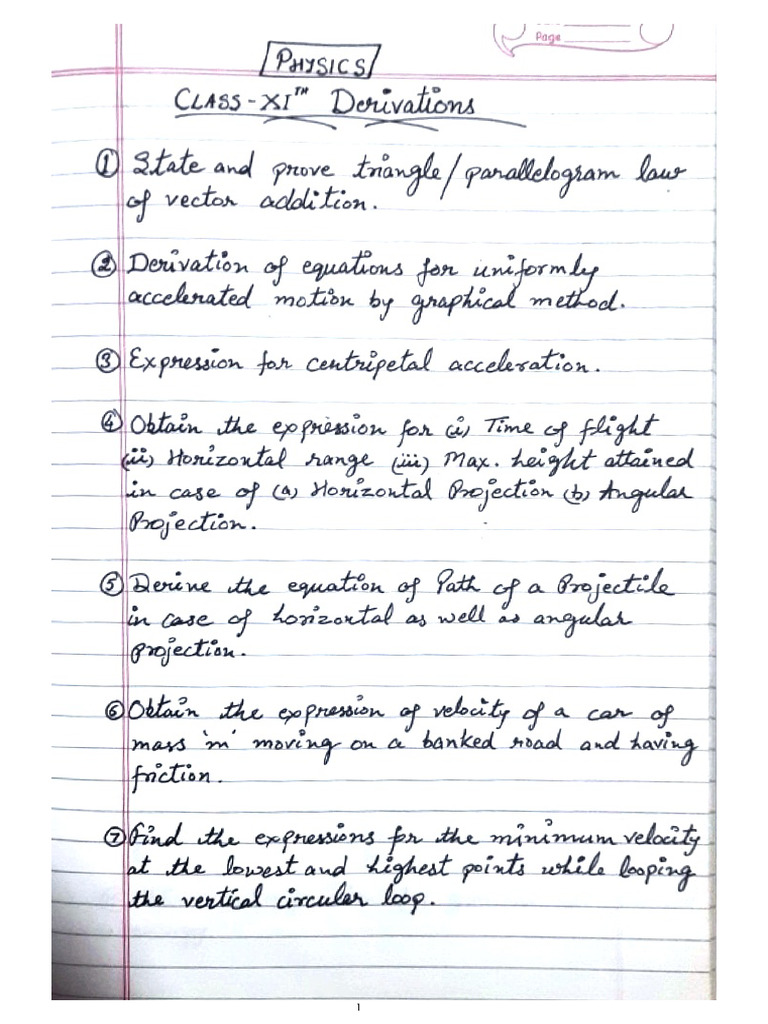 Page
PHYSICS
CLASS-XITH Derivations
① State and prove triangle/parallelogram law
of vector addition.
② Derivation of equations for uniformly
accelerated motion by graphical method.
③ Expression for centripetal acceleration.
④ Obtain the expression for (i) Time of flight
(ii) Horizontal range (iii) Max. height attained
in case of (a) Horizontal Projection (b) Angular
Projection.
⑤ Derive the equation of Path of a Projectile
in case of horizontal as well as angular
projection.
⑥ Obtain the expression of velocity of a car of
mass 'm' moving on a banked road and having
friction.
⑦ Find the expressions for the minimum velocity
at the lowest and highest points while looping
the vertical circular loop.
1